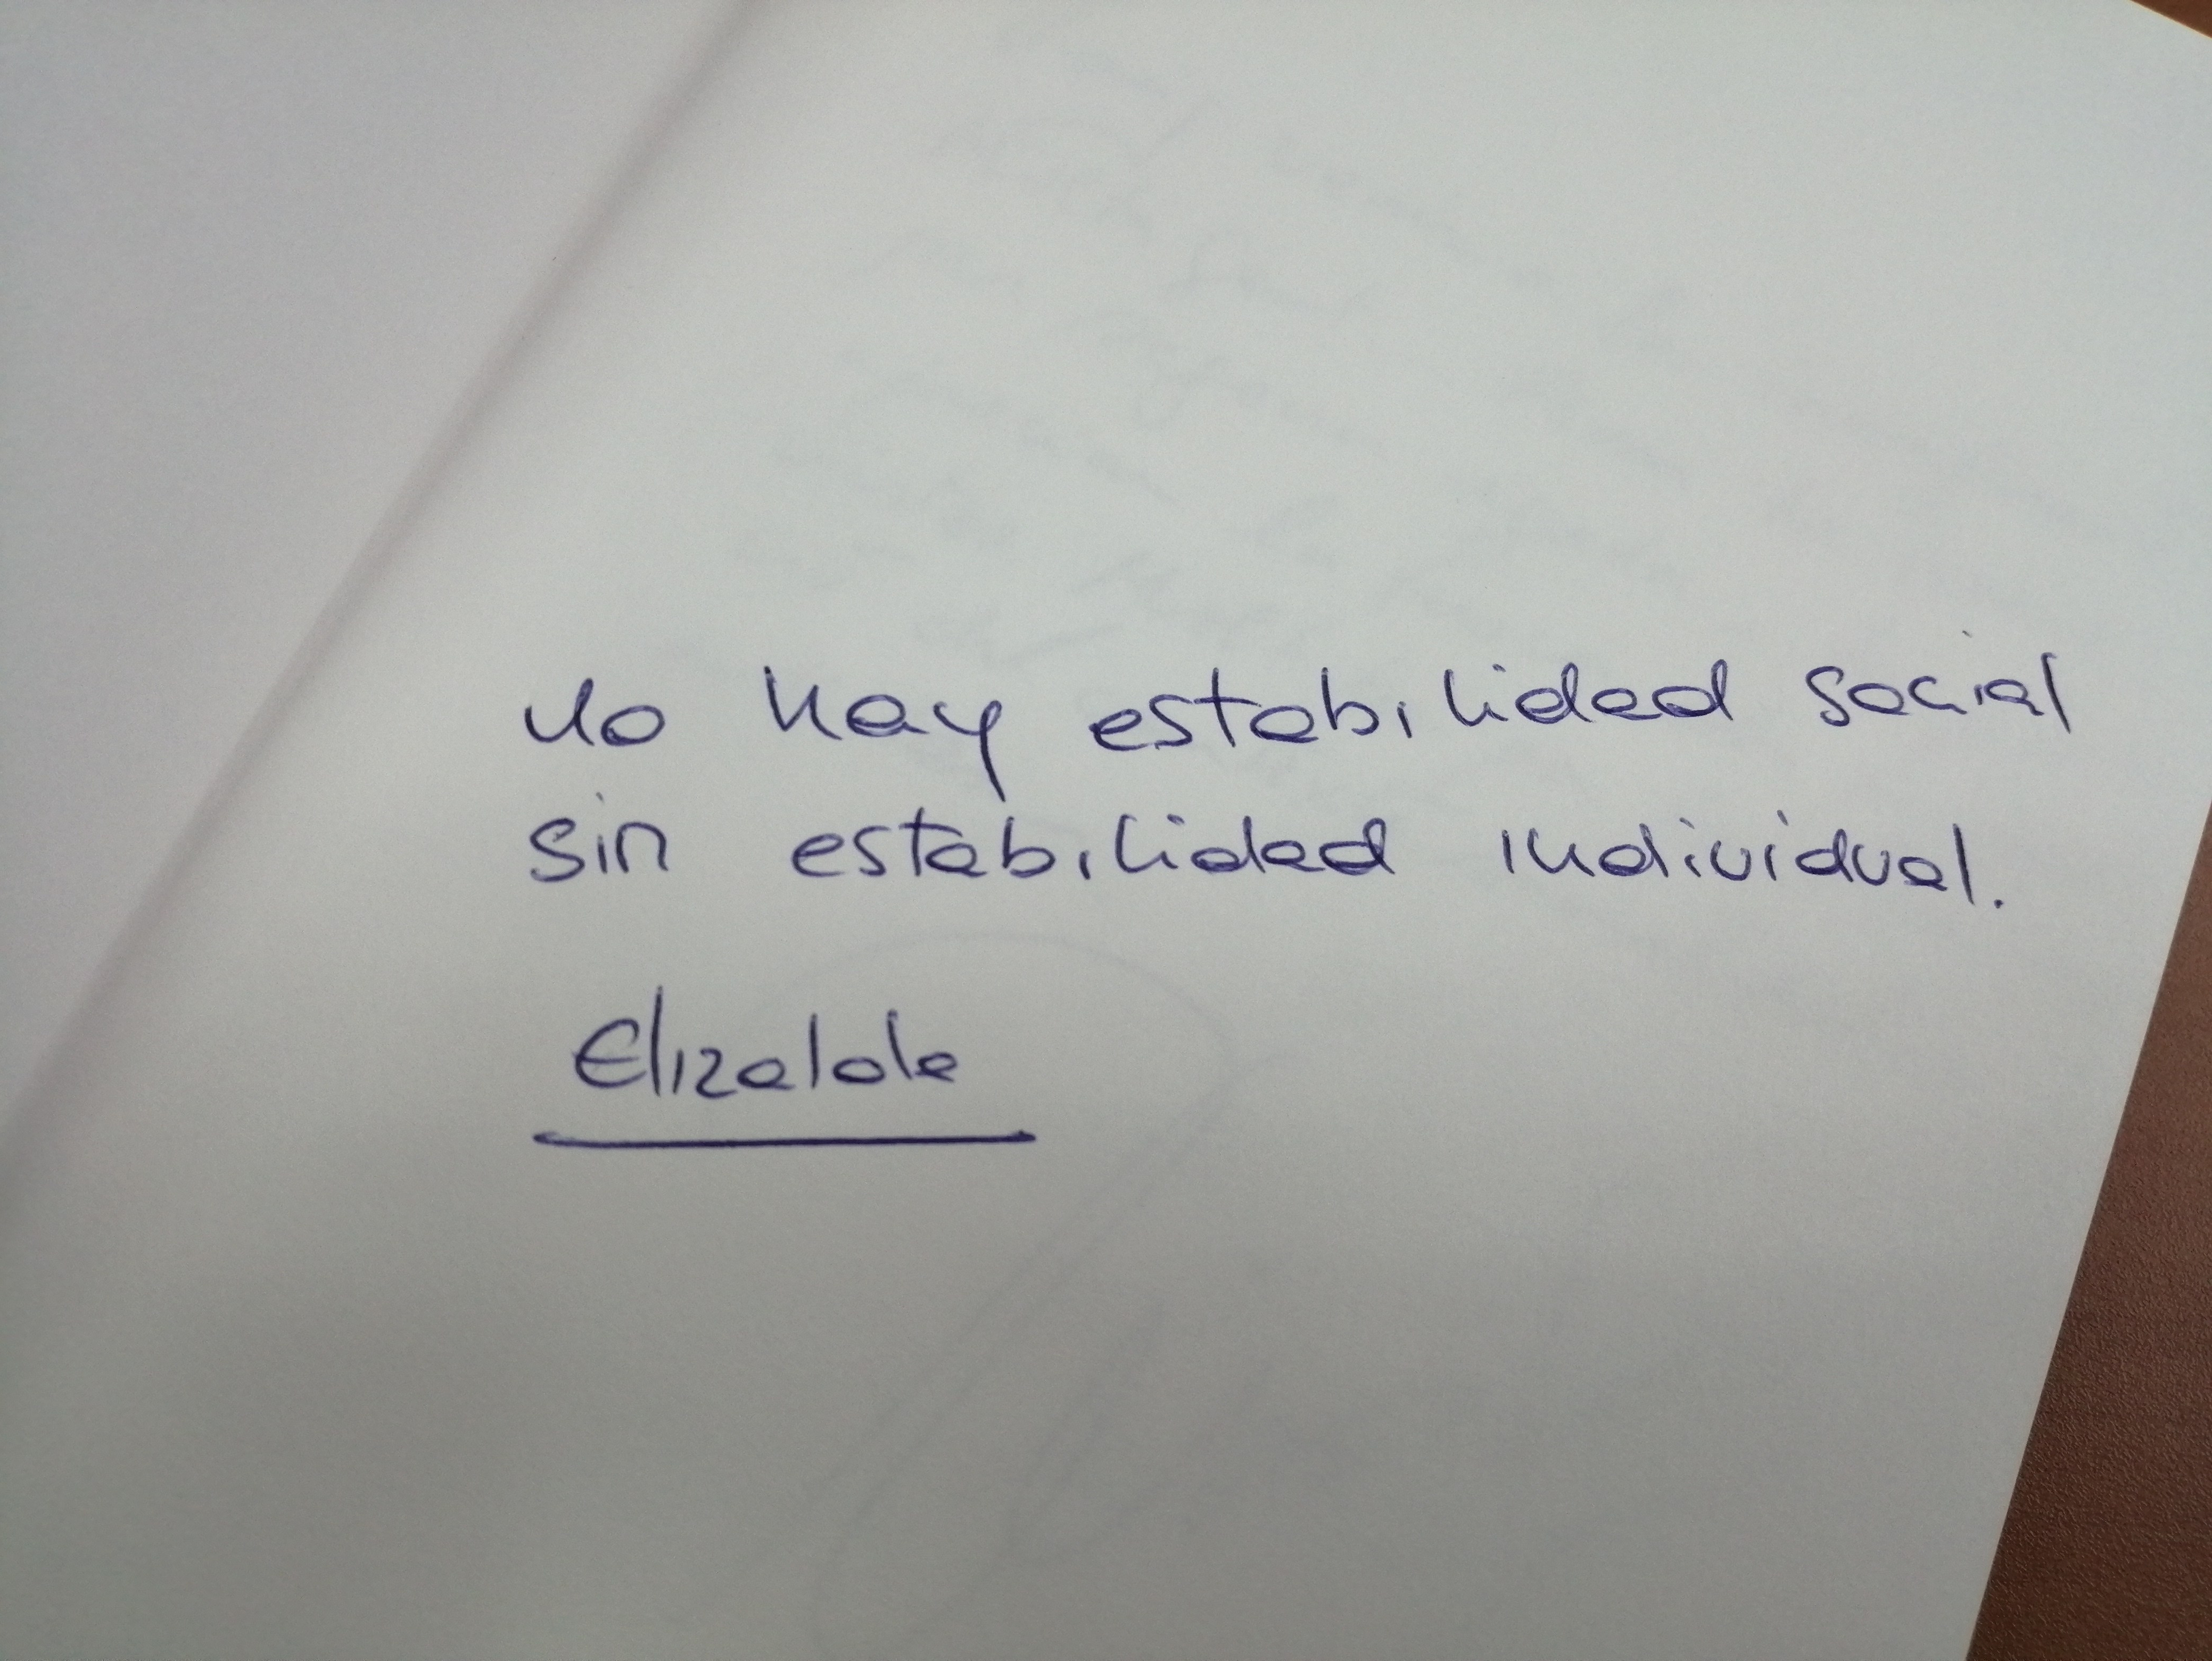 no hay estabilidad social
sin estabilidad individual.
Elizalde